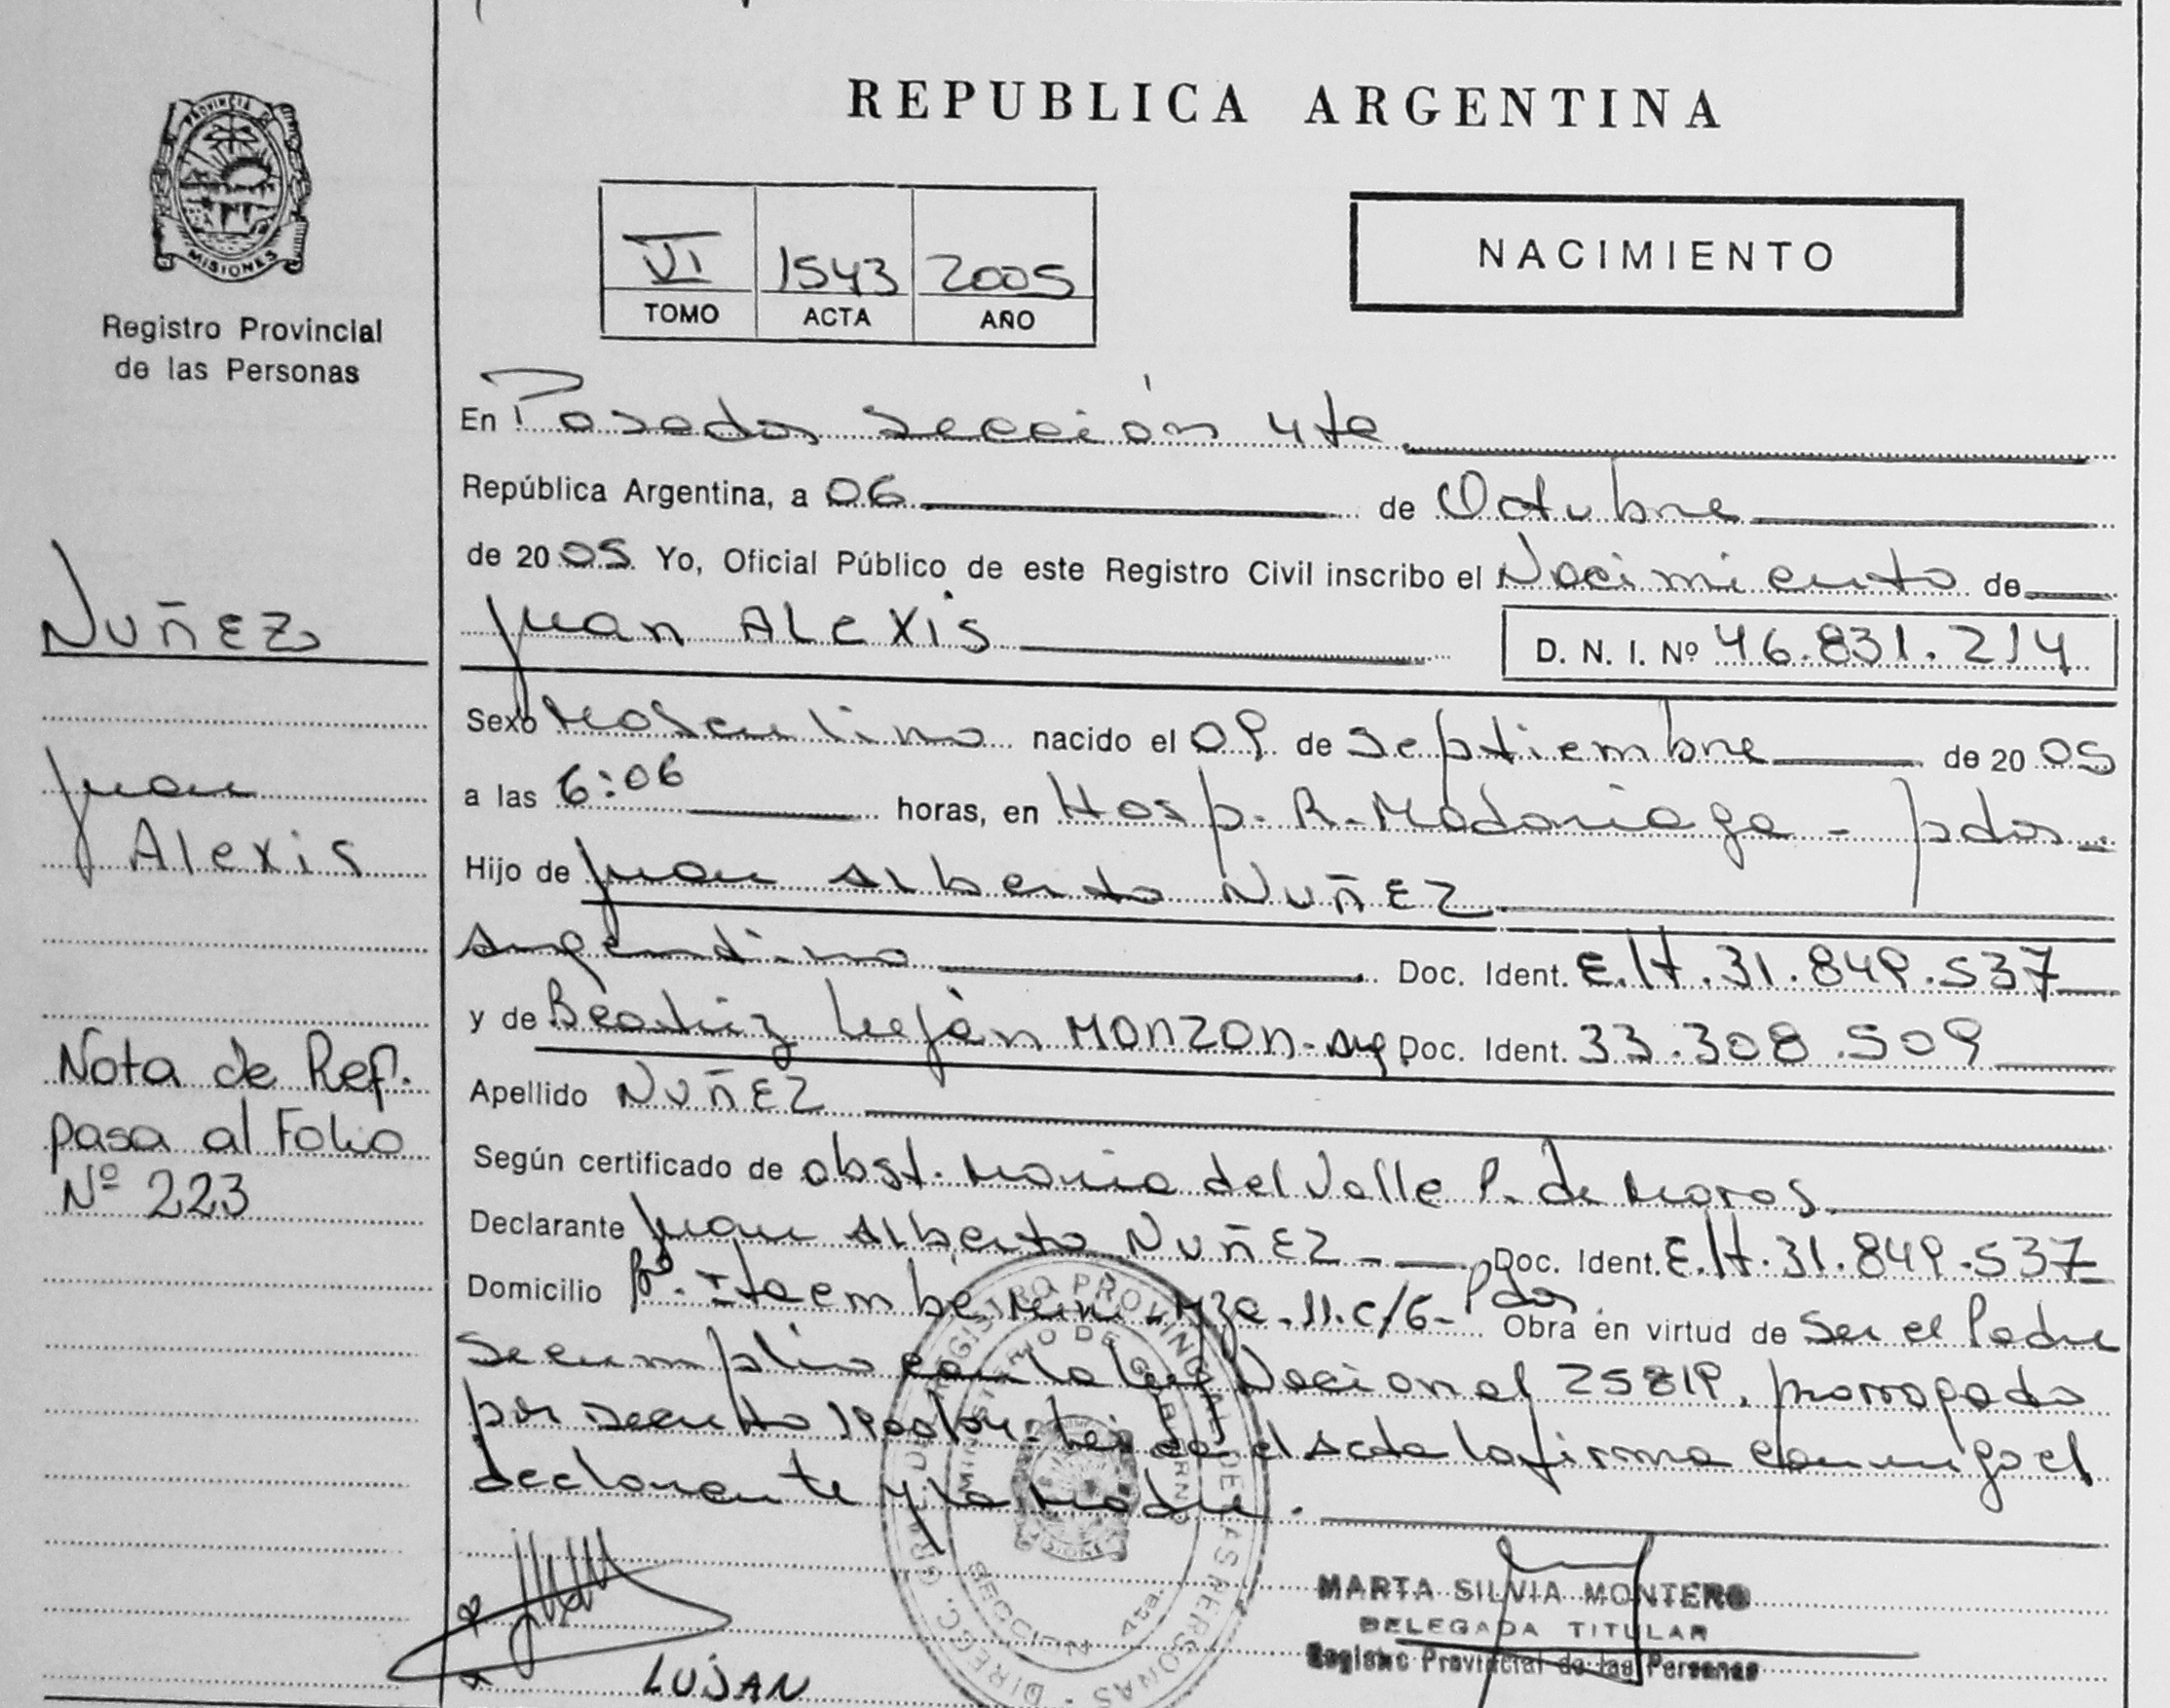 PROVINCIA DE
MISIONES
Registro Provincial
de las Personas
REPUBLICA ARGENTINA
VI 1543 2005
TOMO ACTA AÑO
NACIMIENTO
En Posadas sección 4ta
República Argentina, a 06 de Octubre
de 2005 Yo, Oficial Público de este Registro Civil inscribo el Nacimiento de
NUÑEZ
Juan ALEXIS
D. N. I. Nº 46.831.214
Sexo Masculino nacido el 09 de Septiembre de 2005
Juan
a las 6:06 horas, en Hosp. R. Madariaga - pdas
Alexis
Hijo de Juan Alberto NUÑEZ
argentino Doc. Ident. E.H.31.849.537
y de Beatriz Luján MONZON - arg. Doc. Ident. 33.308.509
Nota de Ref.
pasa al Folio
Nº 223
Apellido NUÑEZ
Según certificado de obst. Maria del Valle P. de
Declarante Juan Alberto NUÑEZ - Doc. Ident. E.H.31.849.537
Domicilio Bº. Itaembé Mini Mza. 11. c/6 - Pdas. Obra en virtud de Ser el Padre
Se cumplio con la Ley Nacional 25819, prorrogada
por Decreto 1900/04 - Leida el Acta la firma conmigo el
declarante y la Madre.
DIRECC. GRAL. DEL REGISTRO PROVINCIAL DE LAS PERSONAS
MINISTERIO DE GOBIERNO
SECCION 4ta.
MISIONES
LUJAN
MARTA SILVIA MONTERO
DELEGADA TITULAR
Registro Provincial de las Personas